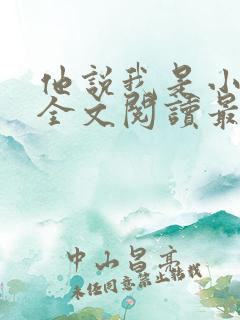 他說我是小
全文閱讀最
中山昌亮
未经同意禁止转载